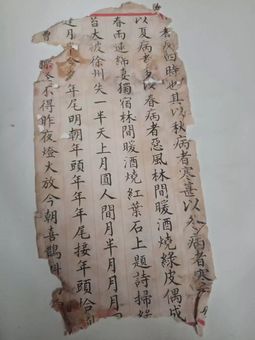 者四時也其以秋病者寒甚以冬病者寒
以夏病者多以春病者惡風林間暖酒燒綠皮偶成
春雨連綿妻獨宿林間暖酒燒紅葉石上題詩掃綠
苔大波徐州失一半天上月圓人間月半月月月
月 年尾明朝年頭年年年尾接年頭恰
曹 不得昨夜燈火放今朝喜鵲